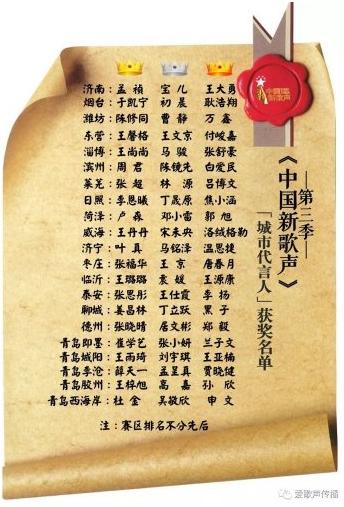 中国新歌声
济南：孟 祯 宝 儿 王大勇
烟台：于凯宁 初 晨 耿浩翔
潍坊：陈修同 曹 静 万 鑫
东营：王馨格 王文京 付峻嘉
淄博：王尚尚 马 骏 张舒豪
滨州：周 君 陈镜先 白爱民
莱芜：张 超 林 源 吕博文
日照：李恩曦 丁晟原 焦小涵
菏泽：卢 森 邓小雷 郭 旭
威海：王丹丹 宋未央 洛绒格勒
济宁：叶 真 马铭泽 温思捷
枣庄：张福华 王 京 唐春月
临沂：王璐璐 袁 媛 王源康
泰安：张思彤 王仕霞 李 扬
聊城：姜昌林 丁立跃 黑 子
德州：张晓晴 居文彬 郑 毅
青岛即墨：崔学艺 张小妍 兰子文
青岛城阳：王雨琦 刘宇琪 王亚楠
青岛李沧：薛天一 孟呈真 贾晓健
青岛胶州：王梓旭 高 嘉 孙 欣
青岛西海岸：杜 金 吴敬欣 申 文
注：赛区排名不分先后
—第三季—
《中国新歌声》
「城市代言人」获奖名单
爱歌声传播